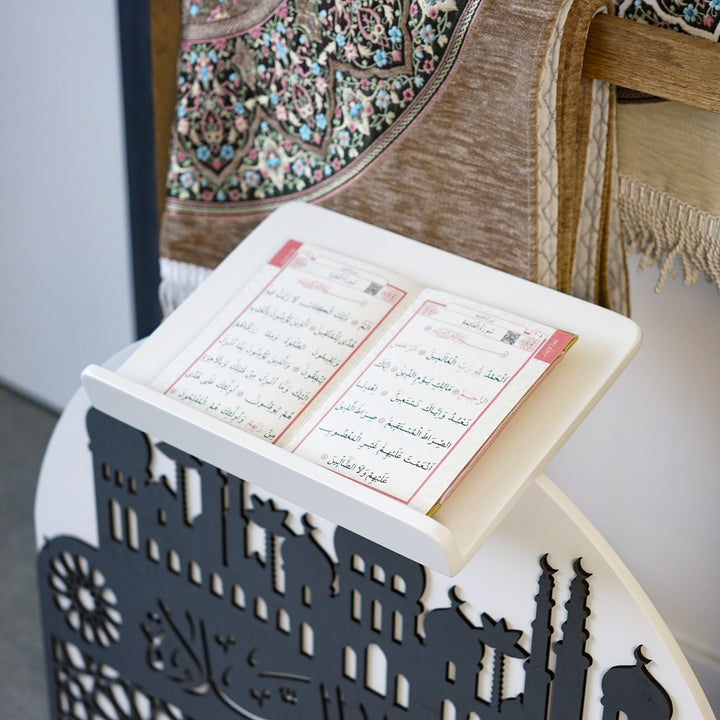 سُورَةُ الْفَاتِحَةِ
اَلْحَمْدُ لِلّٰهِ رَبِّ الْعَالَمِينَ ۞ اَلرَّحْمٰنِ
الرَّحِيمِ ۞ مَالِكِ يَوْمِ الدِّينِ ۞ اِيَّاكَ
نَعْبُدُ وَاِيَّاكَ نَسْتَعِينُ ۞ اِهْدِنَا
الصِّرَاطَ الْمُسْتَقِيمَ ۞ صِرَاطَ الَّذِينَ
اَنْعَمْتَ عَلَيْهِمْ غَيْرِ الْمَغْضُوبِ
عَلَيْهِمْ وَلَا الضَّالِّينَ ۞
سُورَةُ الْبَقَرَةِ
الٓمٓ ۞ ذٰلِكَ الْكِتَابُ لَا رَيْبَ فِيهِ
هُدًى لِلْمُتَّقِينَ ۞ اَلَّذِينَ يُؤْمِنُونَ بِالْغَيْبِ
وَيُقِيمُونَ الصَّلٰوةَ وَمِمَّا رَزَقْنَاهُمْ
يُنْفِقُونَ ۞ وَالَّذِينَ يُؤْمِنُونَ بِمَا اُنْزِلَ
اِلَيْكَ وَمَا اُنْزِلَ مِنْ قَبْلِكَ وَبِالْاٰخِرَةِ
هُمْ يُوقِنُونَ ۞ اُولٰٓئِكَ عَلٰى هُدًى
مِنْ رَبِّهِمْ وَاُولٰٓئِكَ هُمُ الْمُفْلِحُونَ